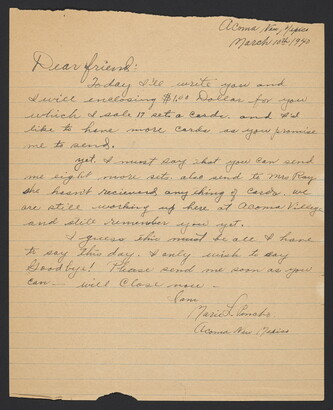 Acoma New Mexico
March 10th 1940
Dear friend:
Today I'll write you and
I will enclosing $1.00 Dollar for you
which I sale 17 set a cards. and I'd
like to have more cards as you promise
me to send.
yet, I must say that you can send
me eight more sets. also send to Mrs. Ray
she hasn't recieved anything of cards. we
are still working up here at Acoma Village
and still remember you yet.
I guess this must be all I have
to say this day. I only wish to say
Goodbye! Please send me soon as you
can — will close now -
I am
Marie L.
Acoma New Mexico